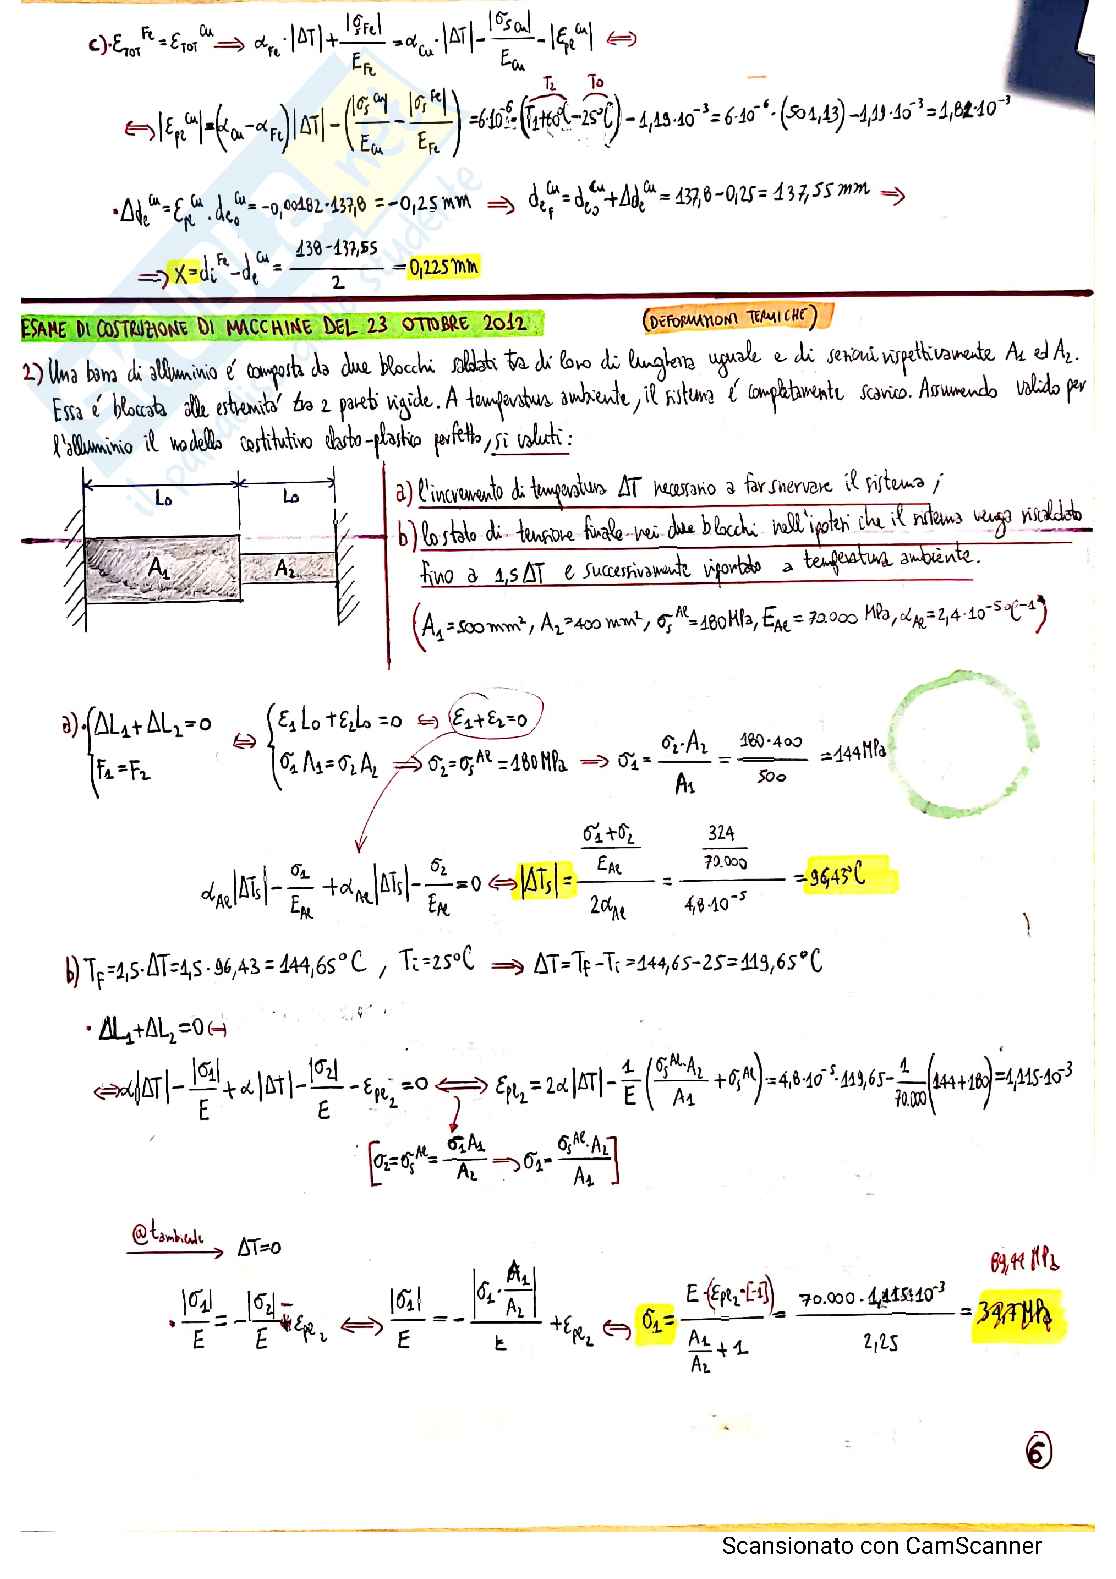 c)· ε_TOT^Fe = ε_TOT^Cu ⟹ α_Fe · |ΔT| + |σ_s^Fe| / E_Fe = α_Cu · |ΔT| - |σ_s^Cu| / E_Cu - |ε_pl^Cu| ⟺
⟺ |ε_pl^Cu| = (α_Cu - α_Fe) |ΔT| - (|σ_s^Cu| / E_Cu - |σ_s^Fe| / E_Fe) = 6·10^-6 · (T_1+60°C - 25°C) - 1,19·10^-3 = 6·10^-6 · (501,13) - 1,19·10^-3 = 1,82·10^-3
T_2 T_0
· Δd_e^Cu = ε_pl^Cu · d_e0^Cu = -0,00182·137,8 = -0,25 mm ⟹ d_ef^Cu = d_e0^Cu + Δd_e^Cu = 137,8 - 0,25 = 137,55 mm ⟹
⟹ x = d_i^Fe - d_e^Cu = (138 - 137,55) / 2 = 0,225 mm
ESAME DI COSTRUZIONE DI MACCHINE DEL 23 OTTOBRE 2012 (DEFORMAZIONI TERMICHE)
2) Una barra di alluminio é composta da due blocchi saldati tra di loro di lunghezza uguale e di sezioni rispettivamente A1 ed A2.
Essa é bloccata alle estremitá tra 2 pareti rigide. A temperatura ambiente, il sistema é completamente scarico. Assumendo valido per
l'alluminio il modello costitutivo elasto-plastico perfetto, si valuti:
L0 L0
A1 A2
a) l'incremento di temperatura ΔT necessario a far snervare il sistema;
b) lo stato di tensione finale nei due blocchi nell'ipotesi che il sistema venga riscaldato
fino a 1,5ΔT e successivamente riportato a temperatura ambiente.
(A1 = 500 mm², A2 = 400 mm², σ_s^Al = 180 MPa, E_Al = 70.000 MPa, α_Al = 2,4·10^-5 °C^-1)
a)· { ΔL1 + ΔL2 = 0 ⟺ { ε1 L0 + ε2 L0 = 0 ⟺ ε1 + ε2 = 0
F1 = F2 σ1 A1 = σ2 A2 ⟹ σ2 = σ_s^Al = 180 MPa ⟹ σ1 = σ2·A2 / A1 = 180·400 / 500 = 144 MPa
α_Al |ΔTs| - σ1 / E_Al + α_Al |ΔTs| - σ2 / E_Al = 0 ⟺ |ΔTs| = ((σ1 + σ2) / E_Al) / 2α_Al = (324 / 70.000) / 4,8·10^-5 = 96,43°C
b) T_F = 1,5·ΔT = 1,5·96,43 = 144,65°C , Ti = 25°C ⟹ ΔT = T_F - Ti = 144,65 - 25 = 119,65°C
· ΔL1 + ΔL2 = 0 ⟺
⟺ α|ΔT| - |σ1| / E + α|ΔT| - |σ2| / E - ε_pl2 = 0 ⟺ ε_pl2 = 2α|ΔT| - 1/E (σ_s^Al·A2 / A1 + σ_s^Al) = 4,8·10^-5·119,65 - 1/70.000 (144+180) = 1,115·10^-3
[σ2 = σ_s^Al = σ1A1 / A2 ⟹ σ1 = σ_s^Al·A2 / A1]
@tambiente ⟶ ΔT = 0
89,44 MPa
· |σ1| / E = - |σ2| / E - ε_pl2 ⟺ |σ1| / E = - |σ1·A1/A2| / E + ε_pl2 ⟺ σ1 = E·(ε_pl2·[-1]) / (A1/A2 + 1) = 70.000·1,115·10^-3 / 2,25 =
6
Scansionato con CamScanner